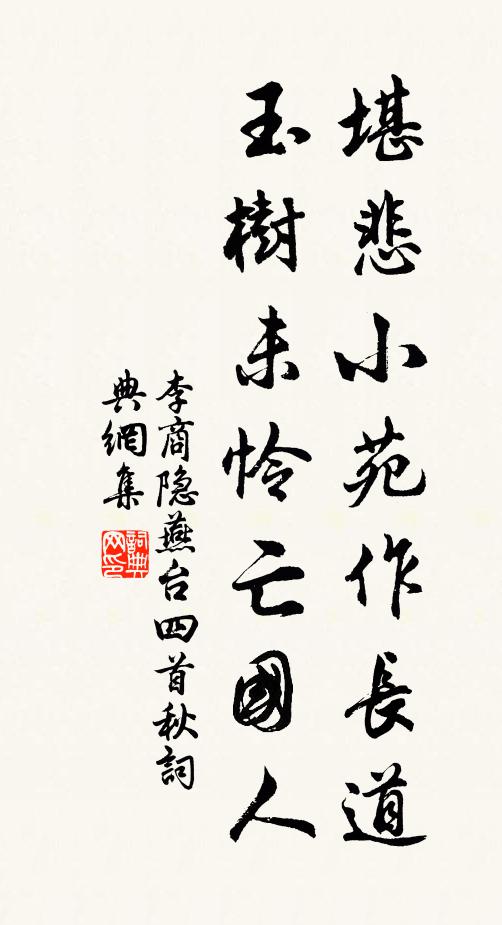 堪悲小苑作長道
玉樹未怜亡國人
李商隐燕台四首秋詞
典網集
詞典
网印